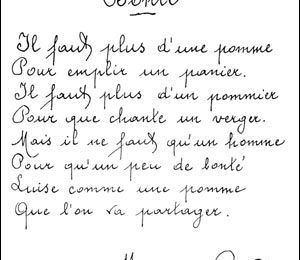 Il faut plus d'une pomme
Pour emplir un panier.
Il faut plus d'un pommier
Pour que chante un verger.
Mais il ne faut qu'un homme
Pour qu'un peu de bonté
Luise comme une pomme
Que l'on va partager.